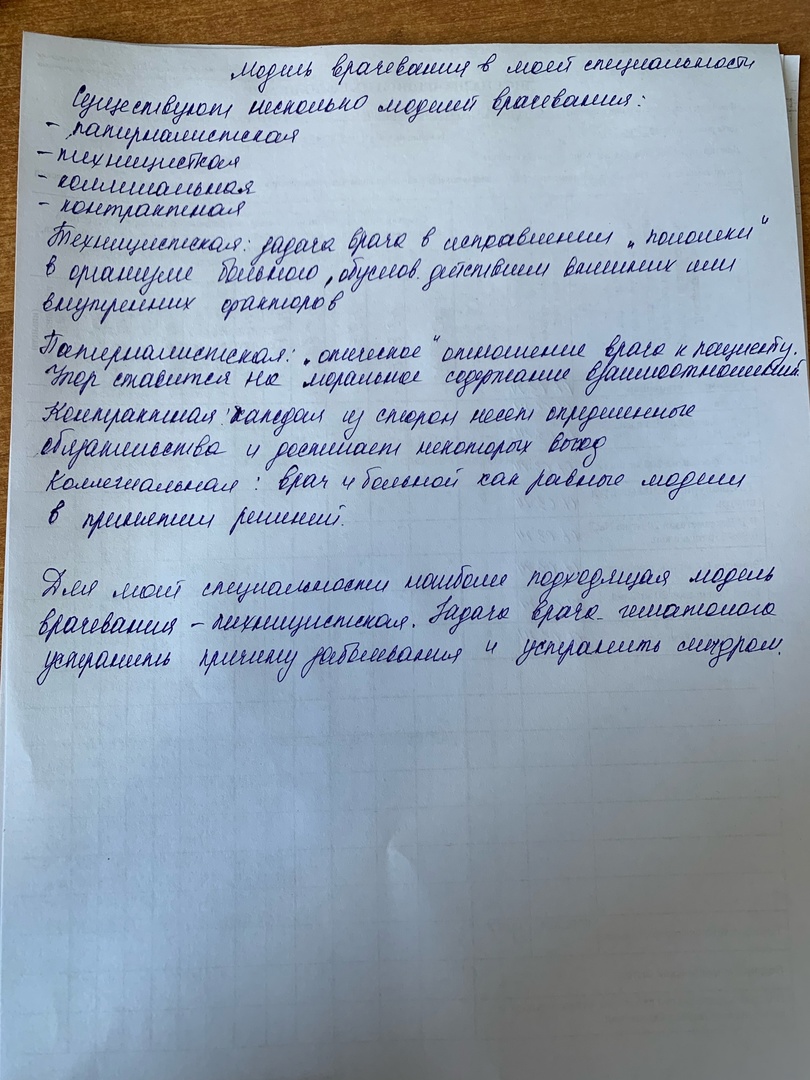 Модель врачевания в моей специальности
Существуют несколько моделей врачевания:
- патерналистская
- техницисткая
- коллегиальная
- контрактная
Техницистская: задача врача в исправлении „поломки"
в организме больного, обуслов. действием внешних или
внутренних факторов
Патерналистская: „отческое" отношение врача к пациенту.
Упор ставится на моральное содержание взаимоотношений.
Контрактная: каждая из сторон несет определенные
обязательства и достигает некоторых выгод
Коллегиальная: врач и больной как равные модели
в принятии решений.
Для моей специальности наиболее подходящая модель
врачевания - техницистская. Задача врача-гематолога
устранить причину заболевания и устранить синдром.